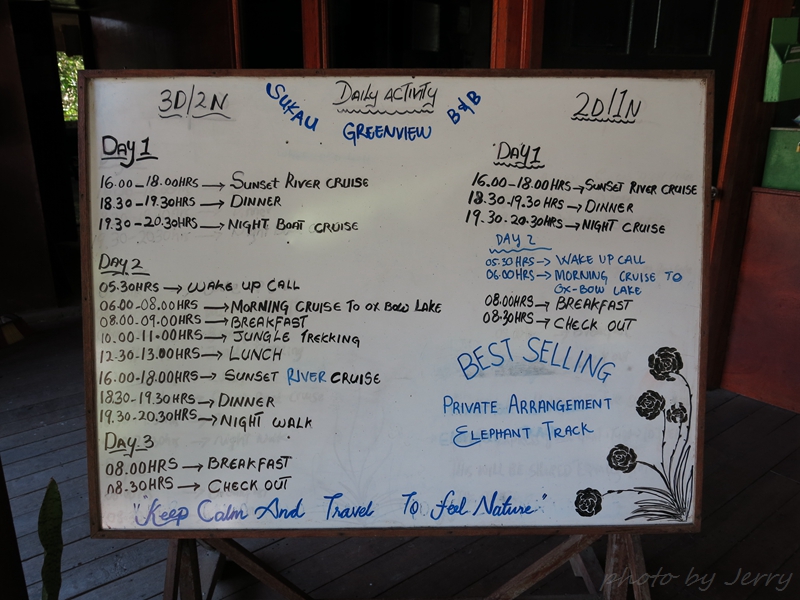 Daily Activity
SUKAU GREENVIEW B&B
3D/2N
Day 1
16.00-18.00HRS → SUNSET RIVER CRUISE
18.30-19.30HRS → DINNER
19.30-20.30HRS → NIGHT BOAT CRUISE
Day 2
05.30HRS → WAKE UP CALL
06.00-08.00HRS → MORNING CRUISE TO OX BOW LAKE
08.00-09.00HRS → BREAKFAST
10.00-11.00HRS → JUNGLE TREKKING
12.30-13.00HRS → LUNCH
16.00-18.00HRS → SUNSET RIVER CRUISE
18.30-19.30HRS → DINNER
19.30-20.30HRS → NIGHT WALK
Day 3
08.00HRS → BREAKFAST
08.30HRS → CHECK OUT
2D/1N
Day 1
16.00-18.00HRS → SUNSET RIVER CRUISE
18.30-19.30HRS → DINNER
19.30-20.30HRS → NIGHT CRUISE
DAY 2
05.30HRS → WAKE UP CALL
06.00HRS → MORNING CRUISE TO
OX-BOW LAKE
08.00HRS → BREAKFAST
08.30HRS → CHECK OUT
BEST SELLING
PRIVATE ARRANGEMENT
ELEPHANT TRACK
"Keep Calm And Travel To feel Nature"
photo by Jerry